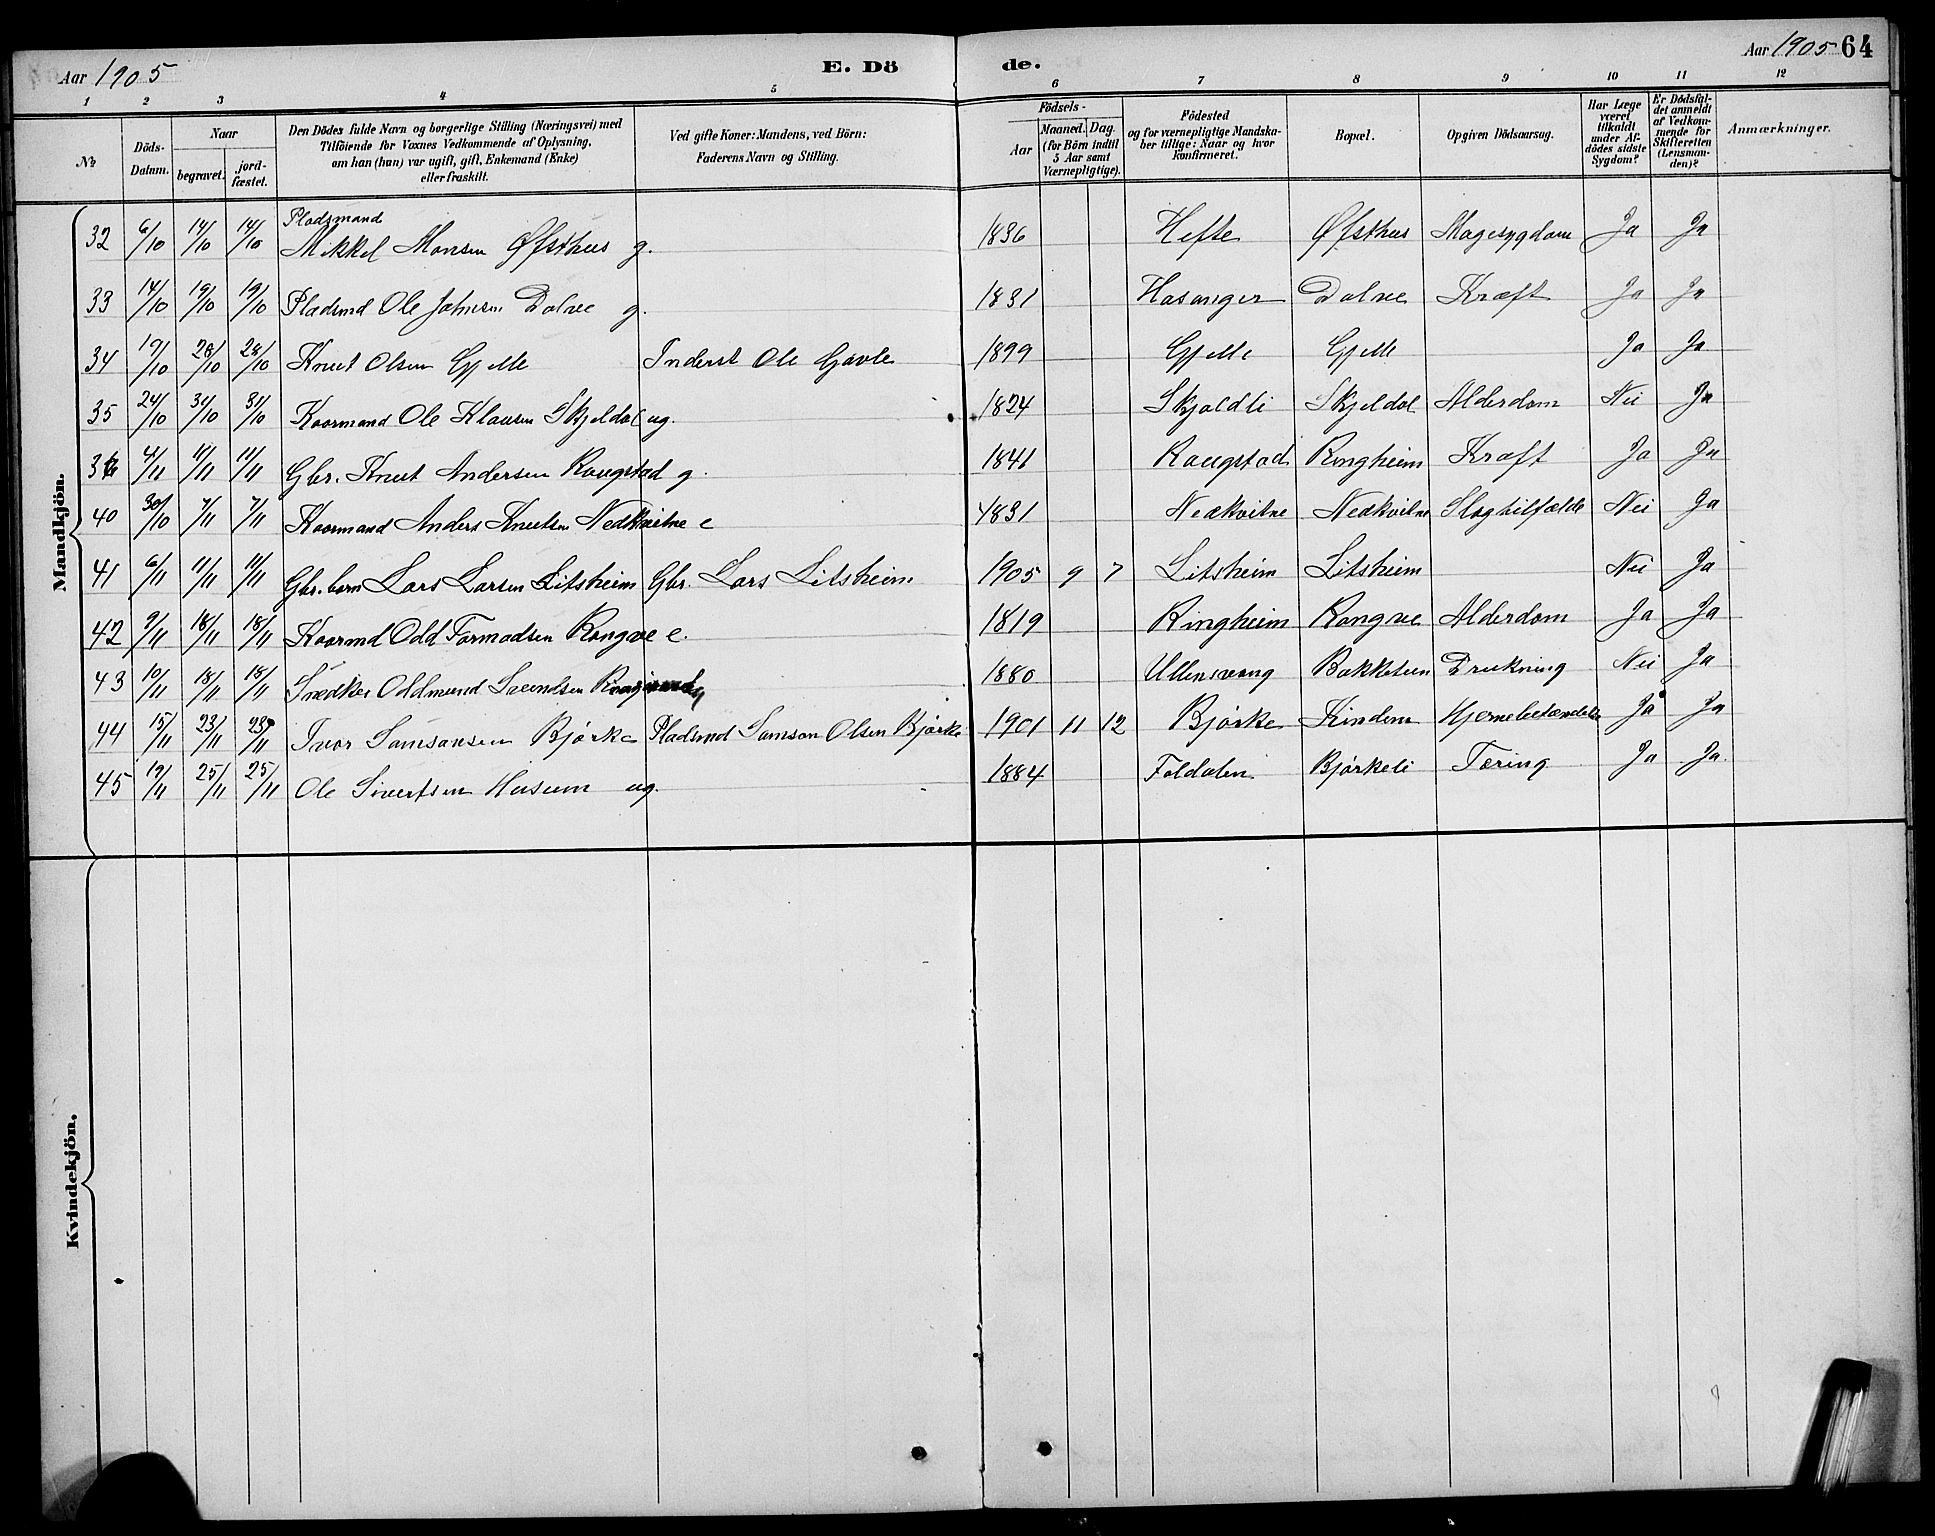 Aar 1905 E. Dö de. Aar 1905 64
1 2 3 4 5 6 7 8 9 10 11 12
№
Döds-Datum.
Naar
begravet.
jord-fæstet.
Den Dödes fulde Navn og borgerlige Stilling (Næringsvei) med
Tilföiende for Voxnes Vedkommende af Oplysning,
om han (hun) var ugift, gift, Enkemand (Enke)
eller fraskilt.
Ved gifte Koner: Mandens, ved Börn:
Faderens Navn og Stilling.
Födsels-
Aar
Maaned. Dag.
(for Börn indtil
5 Aar samt
Værnepligtige).
Födested
og for værnepligtige Mandska-
ber tillige: Naar og hvor
konfirmeret.
Bopæl.
Opgiven Dödsaarsag.
Har Læge
været
tilkaldt
under Af-
dödes sidste
Sygdom?
Er Dödsfal-
det anmeldt
af Vedkom-
mende for
Skifteretten
(Lensman-
den)?
Anmærkninger.
Mandkjön.
Pladsmand
32 6/10 14/10 14/10 Mikkel Monsen Øfsthus g. 1836 Hefte Øfsthus Magesygdom Ja Ja
33 14/10 19/10 19/10 Pladsmd Ole Johnsen Dolve g. 1831 Hosanger Dolve Kræft Ja Ja
34 19/10 28/10 28/10 Knut Olsen Gjelle Inderst Ole Gavle 1899 Gjelle Gjelle Ja Ja
35 24/10 31/10 31/10 Kaarmand Ole Klausen Skjeldal ug. 1824 Skjoldli Skjeldal Alderdom Nei Ja
36 4/11 11/11 11/11 Gbr. Knut Andersen Rougstad g. 1841 Rougstad Ringheim Kræft Ja Ja
40 30/10 7/11 7/11 Kaarmand Anders Knutsen Nedkvitne e 1831 Nedkvitne Nedkvitne Slagtilfælde Nei Ja
41 6/11 11/11 11/11 Gbr. barn Lars Larsen Litsheim Gbr. Lars Litsheim 1905 9 7 Litsheim Litsheim Nei Ja
42 9/11 18/11 18/11 Kaarmd Odd Tormodsen Rongve e. 1819 Ringheim Rongve Alderdom Ja Ja
43 10/11 18/11 18/11 Snedker Oddmund Svendsen 1880 Ullensvang Bakketun Drukning Nei Ja
44 15/11 23/11 23/11 Ivar Samsonsen Bjørke Pladsmd Samson Olsen Bjørke 1901 11 12 Bjørke Kindem Hjernebetændelse Ja Ja
45 19/11 25/11 25/11 Ole Sivertsen Husum ug. 1884 Foldalen Bjørkeli Tæring Ja Ja.
Kvindekjön.